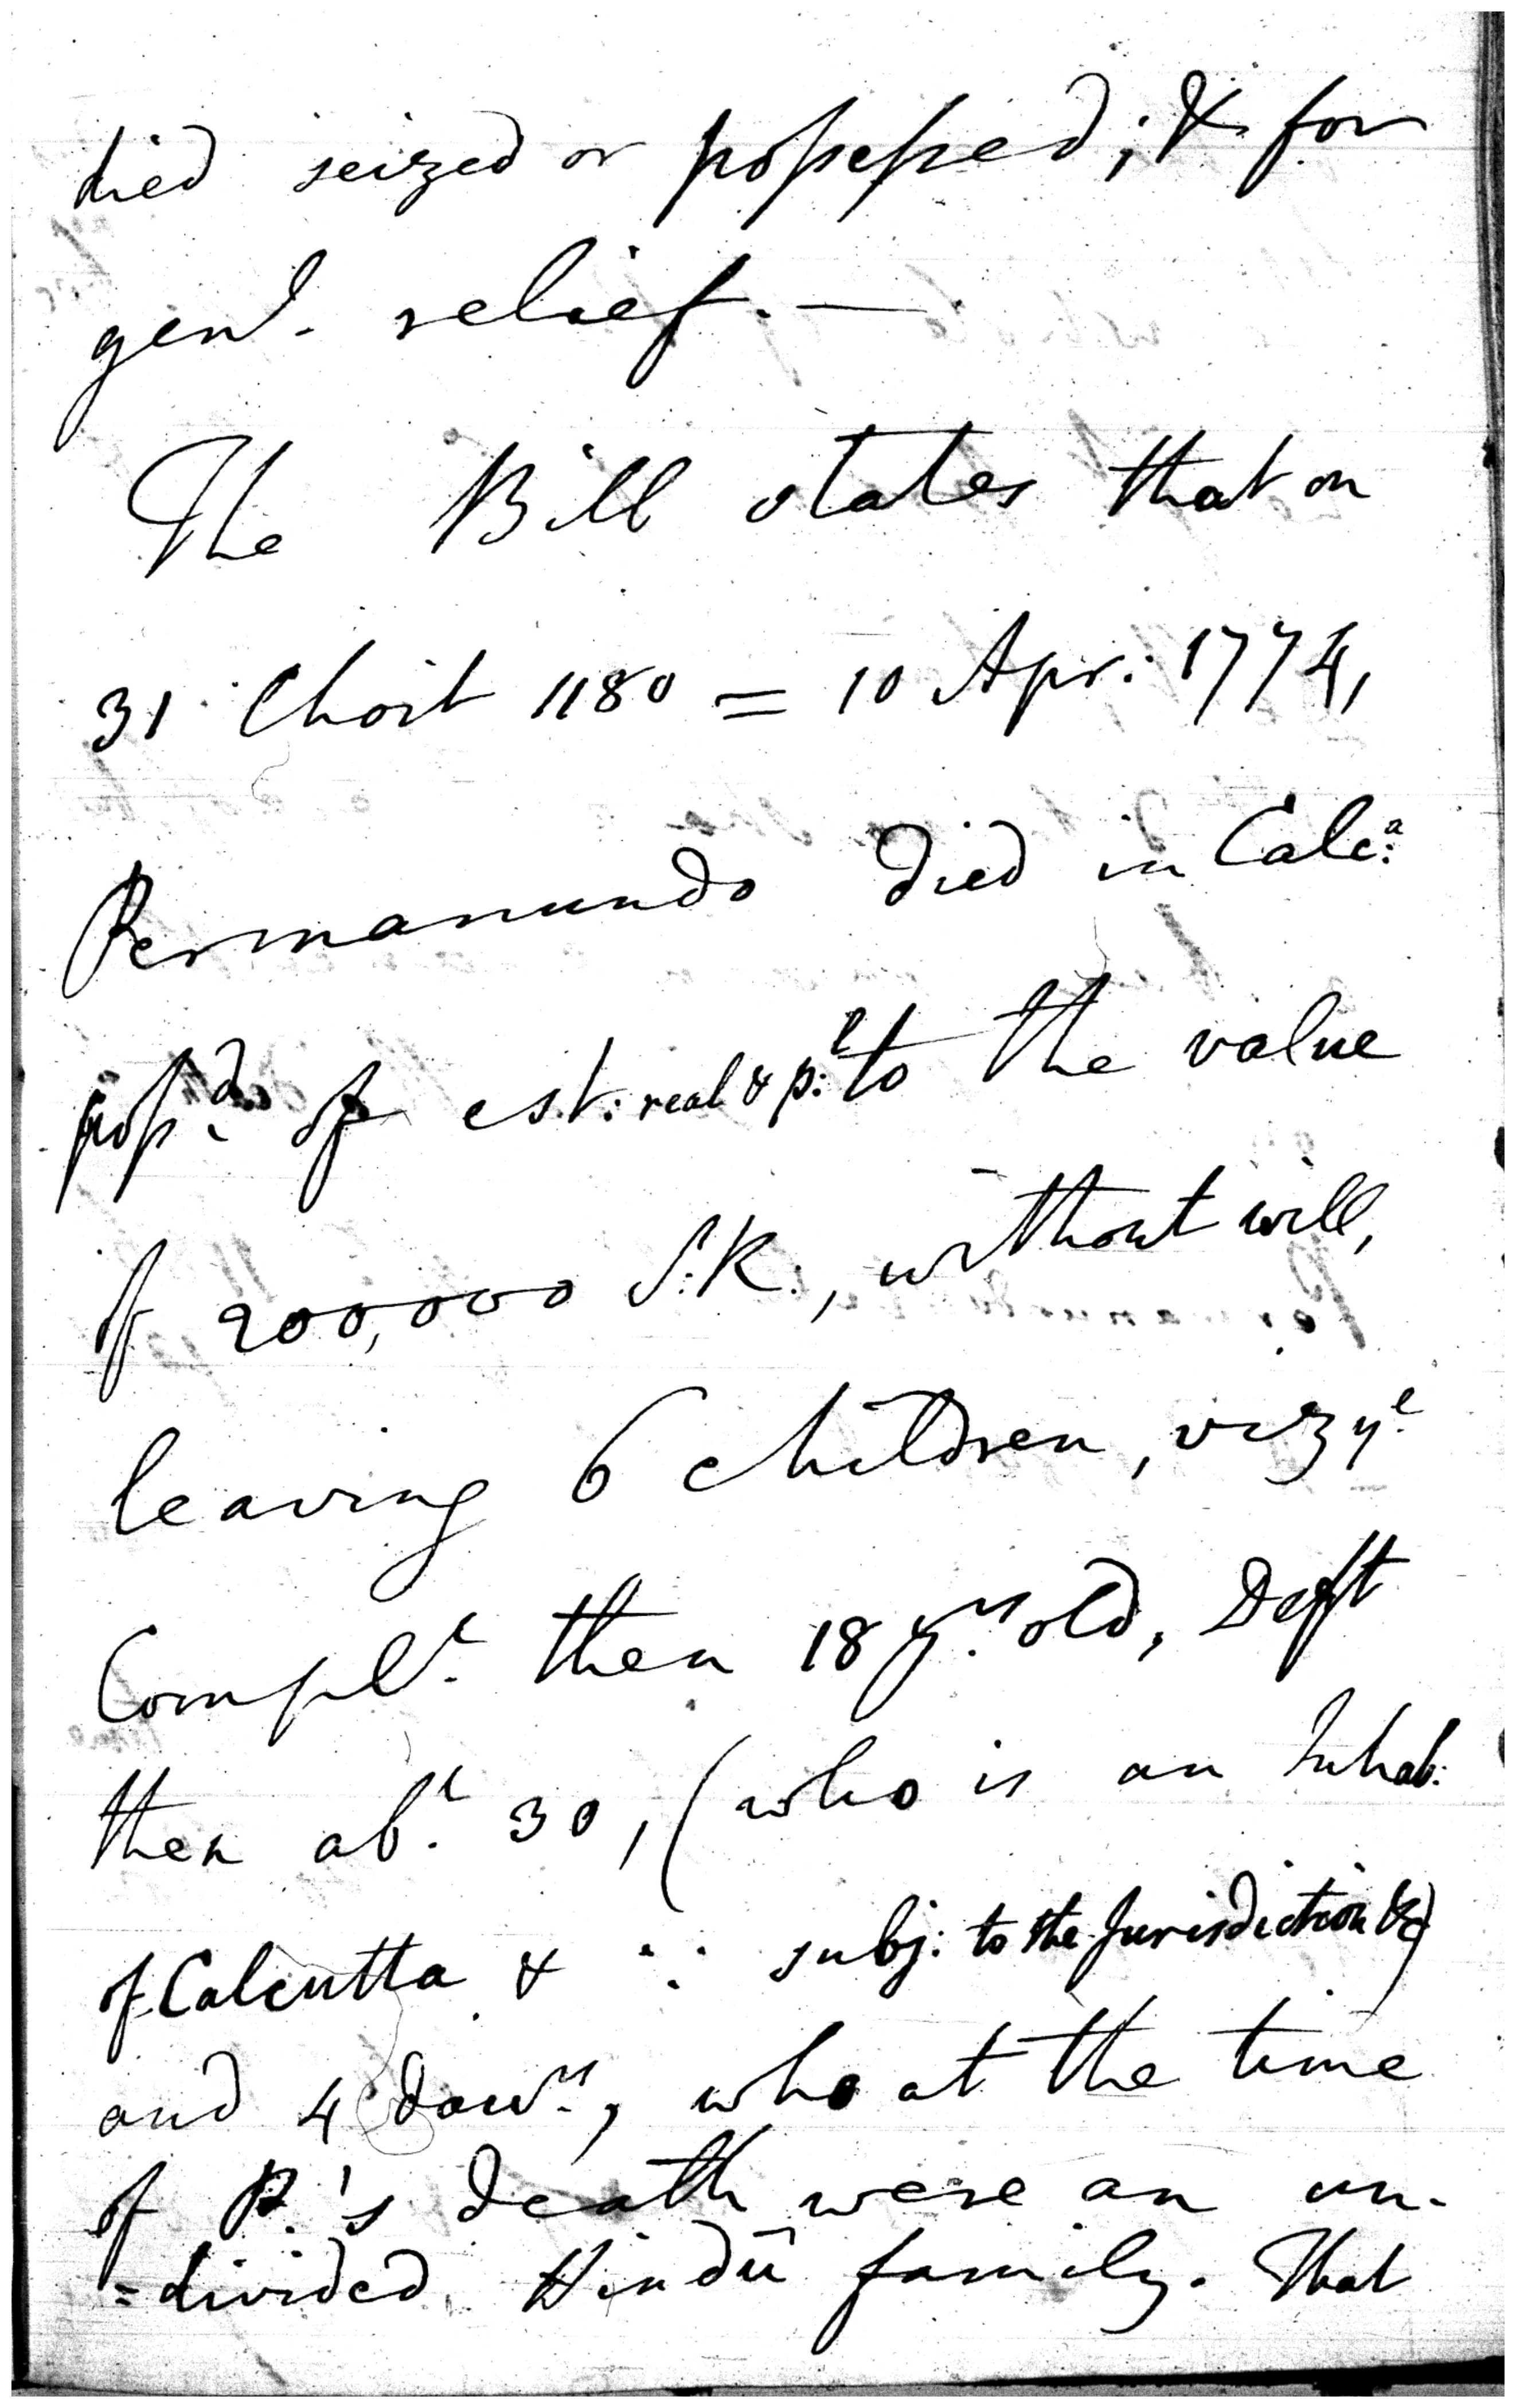 died seized or possessed; & for
genl. relief. —
The Bill states that on
31 Choit 1180 = 10 Apr: 1774,
Permanundo died in Calc:a
poss:d of est: real & p:l to the value
of 200,000 S:R:, without will,
leaving 6 children, viz ye
Complt. then 18 yrs old, Deft
then abt. 30, (who is an Inhab:
of Calcutta & ∵ subj: to the Jurisdiction &c)
and 4 dawrs., who at the time
of P.'s death were an un-
=divided Hindû family. That